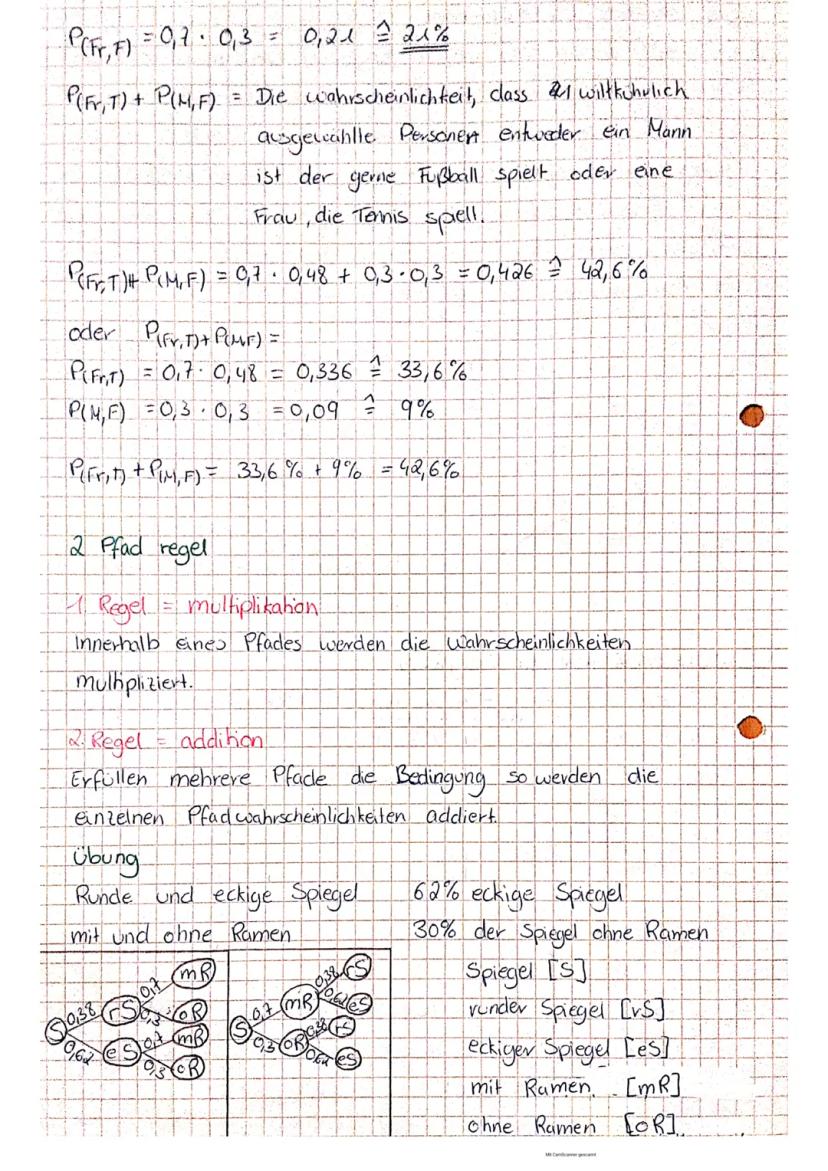 P(Fr,F) = 0,7 · 0,3 = 0,21 ≙ 21%
P(Fr,T) + P(M,F) = Die wahrscheinlichkeit, dass 1 willkührlich
ausgewählte Personen entweder ein Mann
ist der gerne Fußball spielt oder eine
Frau, die Tennis spell.
P(Fr,T) + P(M,F) = 0,7 · 0,48 + 0,3 · 0,3 = 0,426 ≙ 42,6%
oder P(Fr,T) + P(M,F) =
P(Fr,T) = 0,7 · 0,48 = 0,336 ≙ 33,6%
P(M,F) = 0,3 · 0,3 = 0,09 ≙ 9%
P(Fr,T) + P(M,F) = 33,6% + 9% = 42,6%
2 Pfad regel
1. Regel = multiplikation
Innerhalb eines Pfades werden die Wahrscheinlichkeiten
multipliziert.
2. Regel = addition
Erfüllen mehrere Pfade die Bedingung so werden die
einzelnen Pfadwahrscheinlichkeiten addiert.
Übung
Runde und eckige Spiegel 62% eckige Spiegel
mit und ohne Ramen 30% der Spiegel ohne Ramen
Spiegel [S]
runder Spiegel [rS]
eckiger Spiegel [eS]
mit Ramen [mR]
ohne Ramen [oR]
S 0,38 rS 0,7 mR
0,3 oR
0,62 eS 0,7 mR
0,3 oR
S 0,7 mR 0,38 rS
0,62 eS
0,3 oR 0,38 rS
0,62 eS
Mit CamScanner gescannt